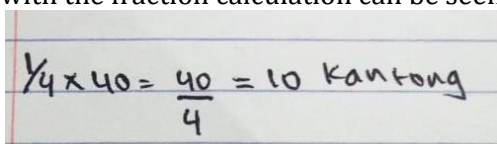 with the fraction calculation can be seen
1/4 x 40 = 40/4 = 10 kantong